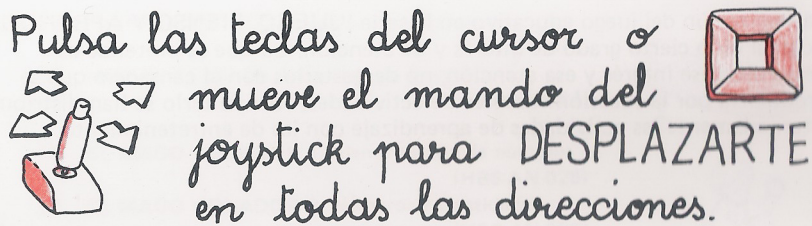 Pulsa las teclas del cursor o
mueve el mando del
joystick para DESPLAZARTE
en todas las direcciones.